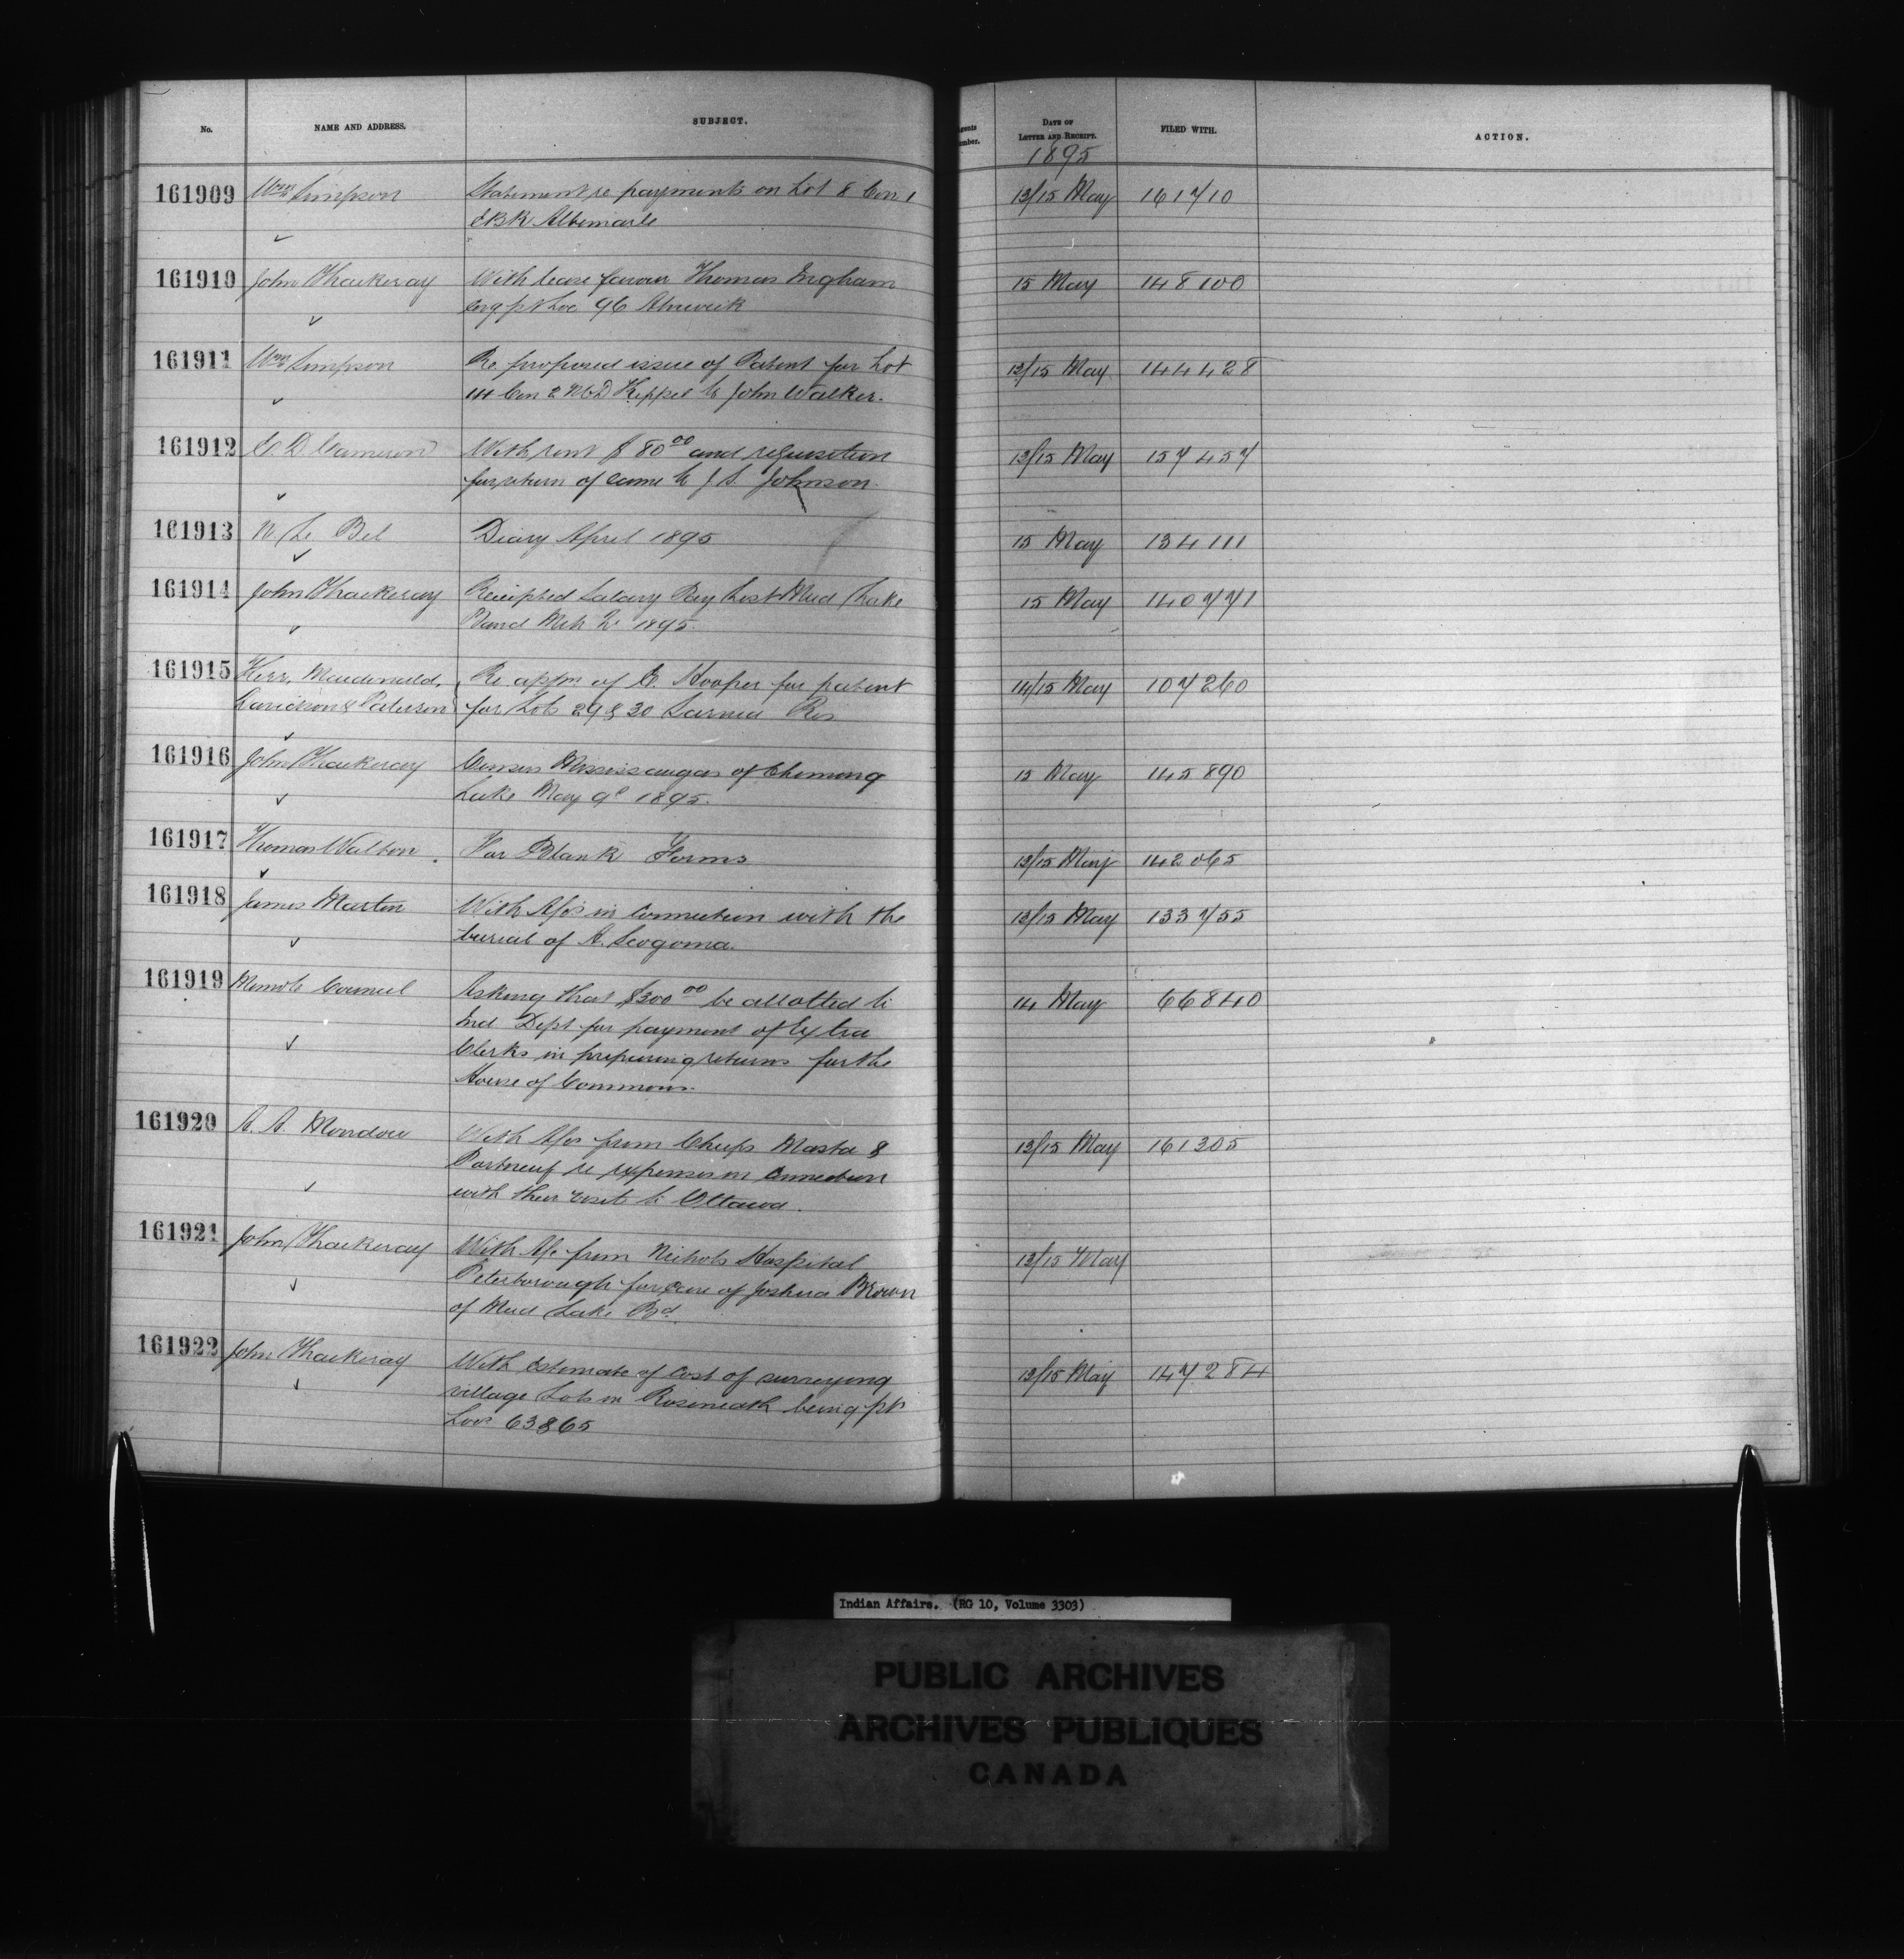 No.
NAME AND ADDRESS.
SUBJECT.
gents
umber.
DATE OF
LETTER AND RECEIPT.
FILED WITH.
ACTION.
1895
161909 Wm Simpson Statement re payments on Lot 8 Con 1 13/15 May 161710
EBR Albemarle
161910 John Thackeray With lease favour Thomas Ingham 15 May 148100
cong pt Loc 96 Alnwick
161911 Wm Simpson Re proposed issue of Patent for Lot 13/15 May 144428
14 Con 2 NCD Keppel to John Walker.
161912 E. D. Cameron With rent $80 00 and requisition 13/15 May 157457
for return of same to J S. Johnson.
161913 N. Le Bel Diary April 1895 15 May 134111
161914 John Thackeray Receipted Salary Pay List Mud Lake 15 May 140771
Band Mch Qr 1895.
161915 Kerr, Macdonald, Re appn of E. Hooper for patent 14/15 May 107260
Davidson & Paterson for Lots 29 & 30 Sarnia Res
161916 John Thackeray Census Mississaugas of Chemong 15 May 145890
Lake May 9th 1895.
161917 Thomas Walton. For Blank Forms 13/15 May 142065
161918 James Martin With A/cs in connection with the 13/15 May 133755
burial of A. Scogoma.
161919 Memo to Council Asking that $300 00 be allotted to 14 May 66840
Ind Dept for payment of Extra
Clerks in preparing returns for the
House of Commons.
161920 A. A. Mondou With A/cs from Chiefs Masta & 13/15 May 161305
Portneuf re expenses in connection
with their visit to Ottawa.
161921 John Thackeray With A/c from Nichols Hospital 13/15 May
Peterborough for care of Joshua Brown
of Mud Lake Bd.
161922 John Thackeray With Estimate of Cost of surveying 13/15 May 147284
village Lots in Roseneath being pt
Locs 63 & 65
Indian Affairs. (RG 10, Volume 3303)
PUBLIC ARCHIVES
ARCHIVES PUBLIQUES
CANADA